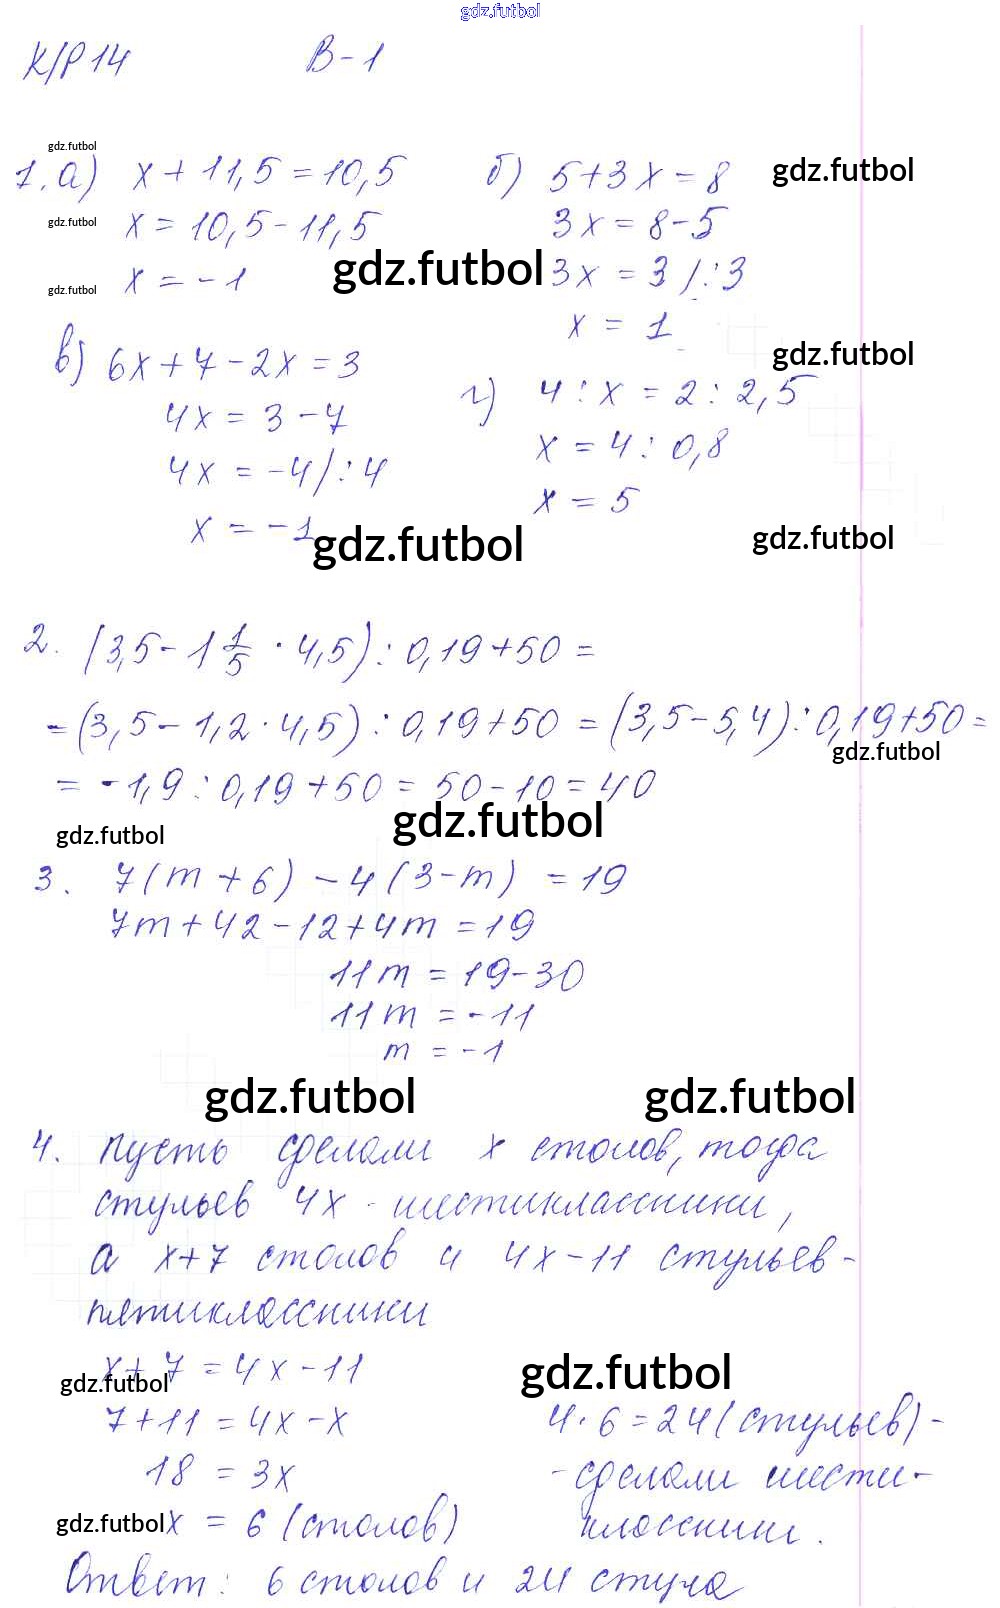 gdz.futbol
К/Р 14 В-1
gdz.futbol
1. а) x + 11,5 = 10,5 б) 5+3x = 8 gdz.futbol
gdz.futbol x = 10,5 - 11,5 3x = 8-5
gdz.futbol x = -1 gdz.futbol 3x = 3 /:3
x = 1
в) 6x + 7 - 2x = 3 gdz.futbol
4x = 3 - 7 г) 4 : x = 2 : 2,5
4x = -4/:4 x = 4 : 0,8
x = -1 x = 5
gdz.futbol gdz.futbol
2. (3,5 - 1 1/5 · 4,5) : 0,19 + 50 =
= (3,5 - 1,2 · 4,5) : 0,19 + 50 = (3,5 - 5,4) : 0,19 + 50 =
gdz.futbol
= -1,9 : 0,19 + 50 = 50 - 10 = 40
gdz.futbol gdz.futbol
3. 7(m + 6) - 4(3 - m) = 19
7m + 42 - 12 + 4m = 19
11m = 19 - 30
11m = -11
m = -1
gdz.futbol gdz.futbol
4. Пусть сделали x столов, тогда
стульев 4x - шестиклассники,
а x+7 столов и 4x - 11 стульев -
пятиклассники
x + 7 = 4x - 11 gdz.futbol
gdz.futbol
7 + 11 = 4x - x 4 · 6 = 24 (стульев) -
18 = 3x - сделали шести-
gdz.futbol x = 6 (столов) классники.
Ответ: 6 столов и 24 стула